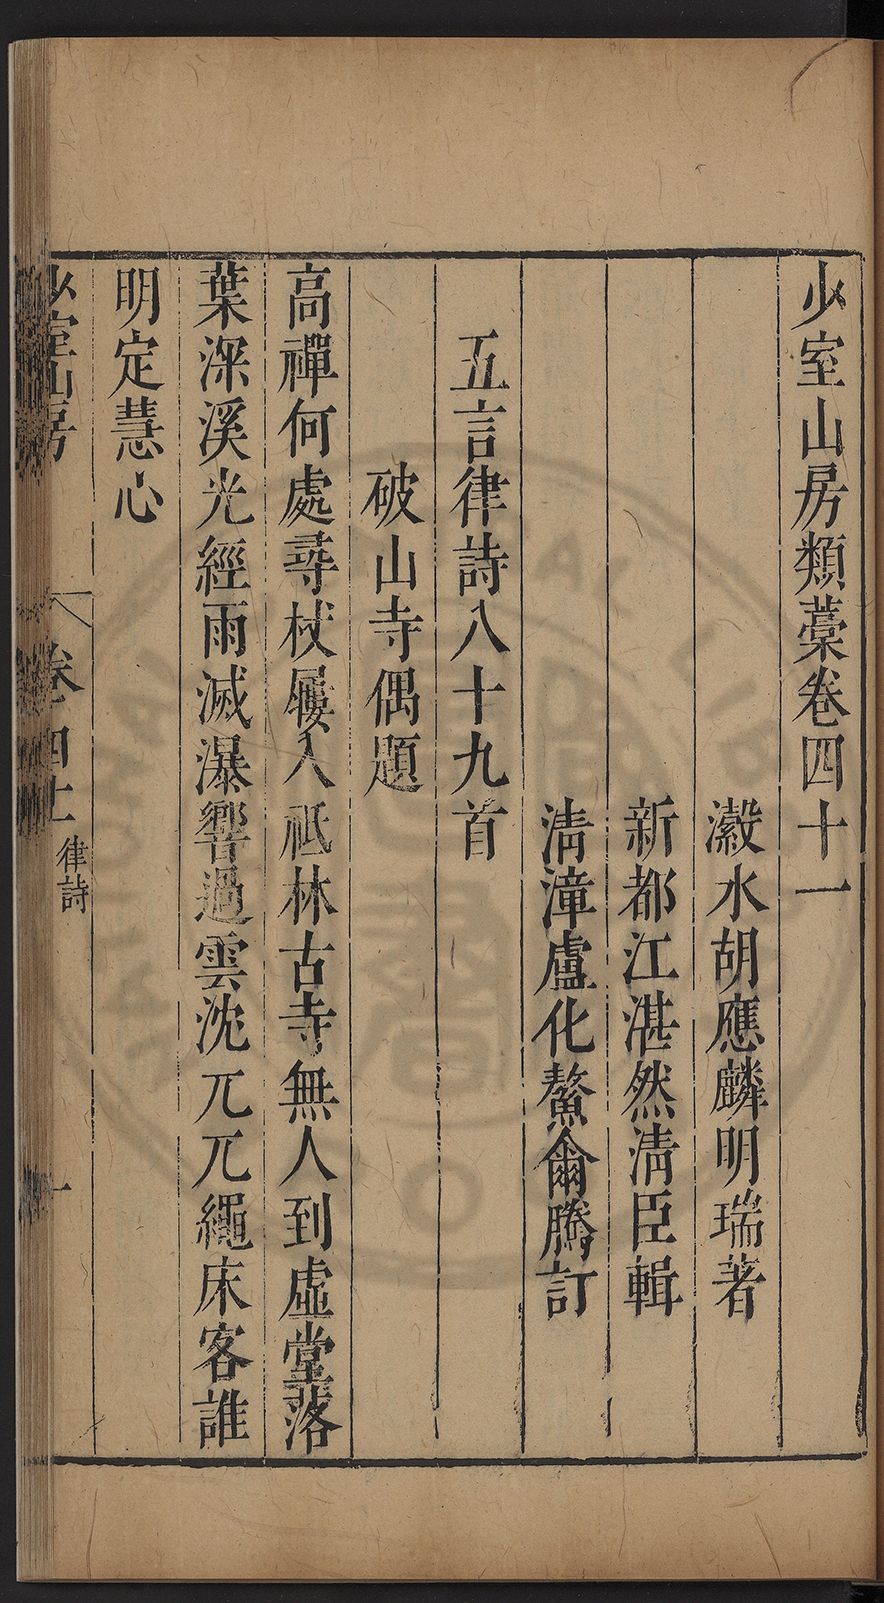 少室山房類藳卷四十一
瀫水胡應麟明瑞著
新都江湛然清臣輯
清漳盧化鰲爾騰訂
五言律詩八十九首
破山寺偶題
高禪何處尋杖屨入祇林古寺無人到虛堂落
葉深溪光經雨滅瀑響過雲沈兀兀繩床客誰
明定慧心
少室山房
卷四十一
律詩
一